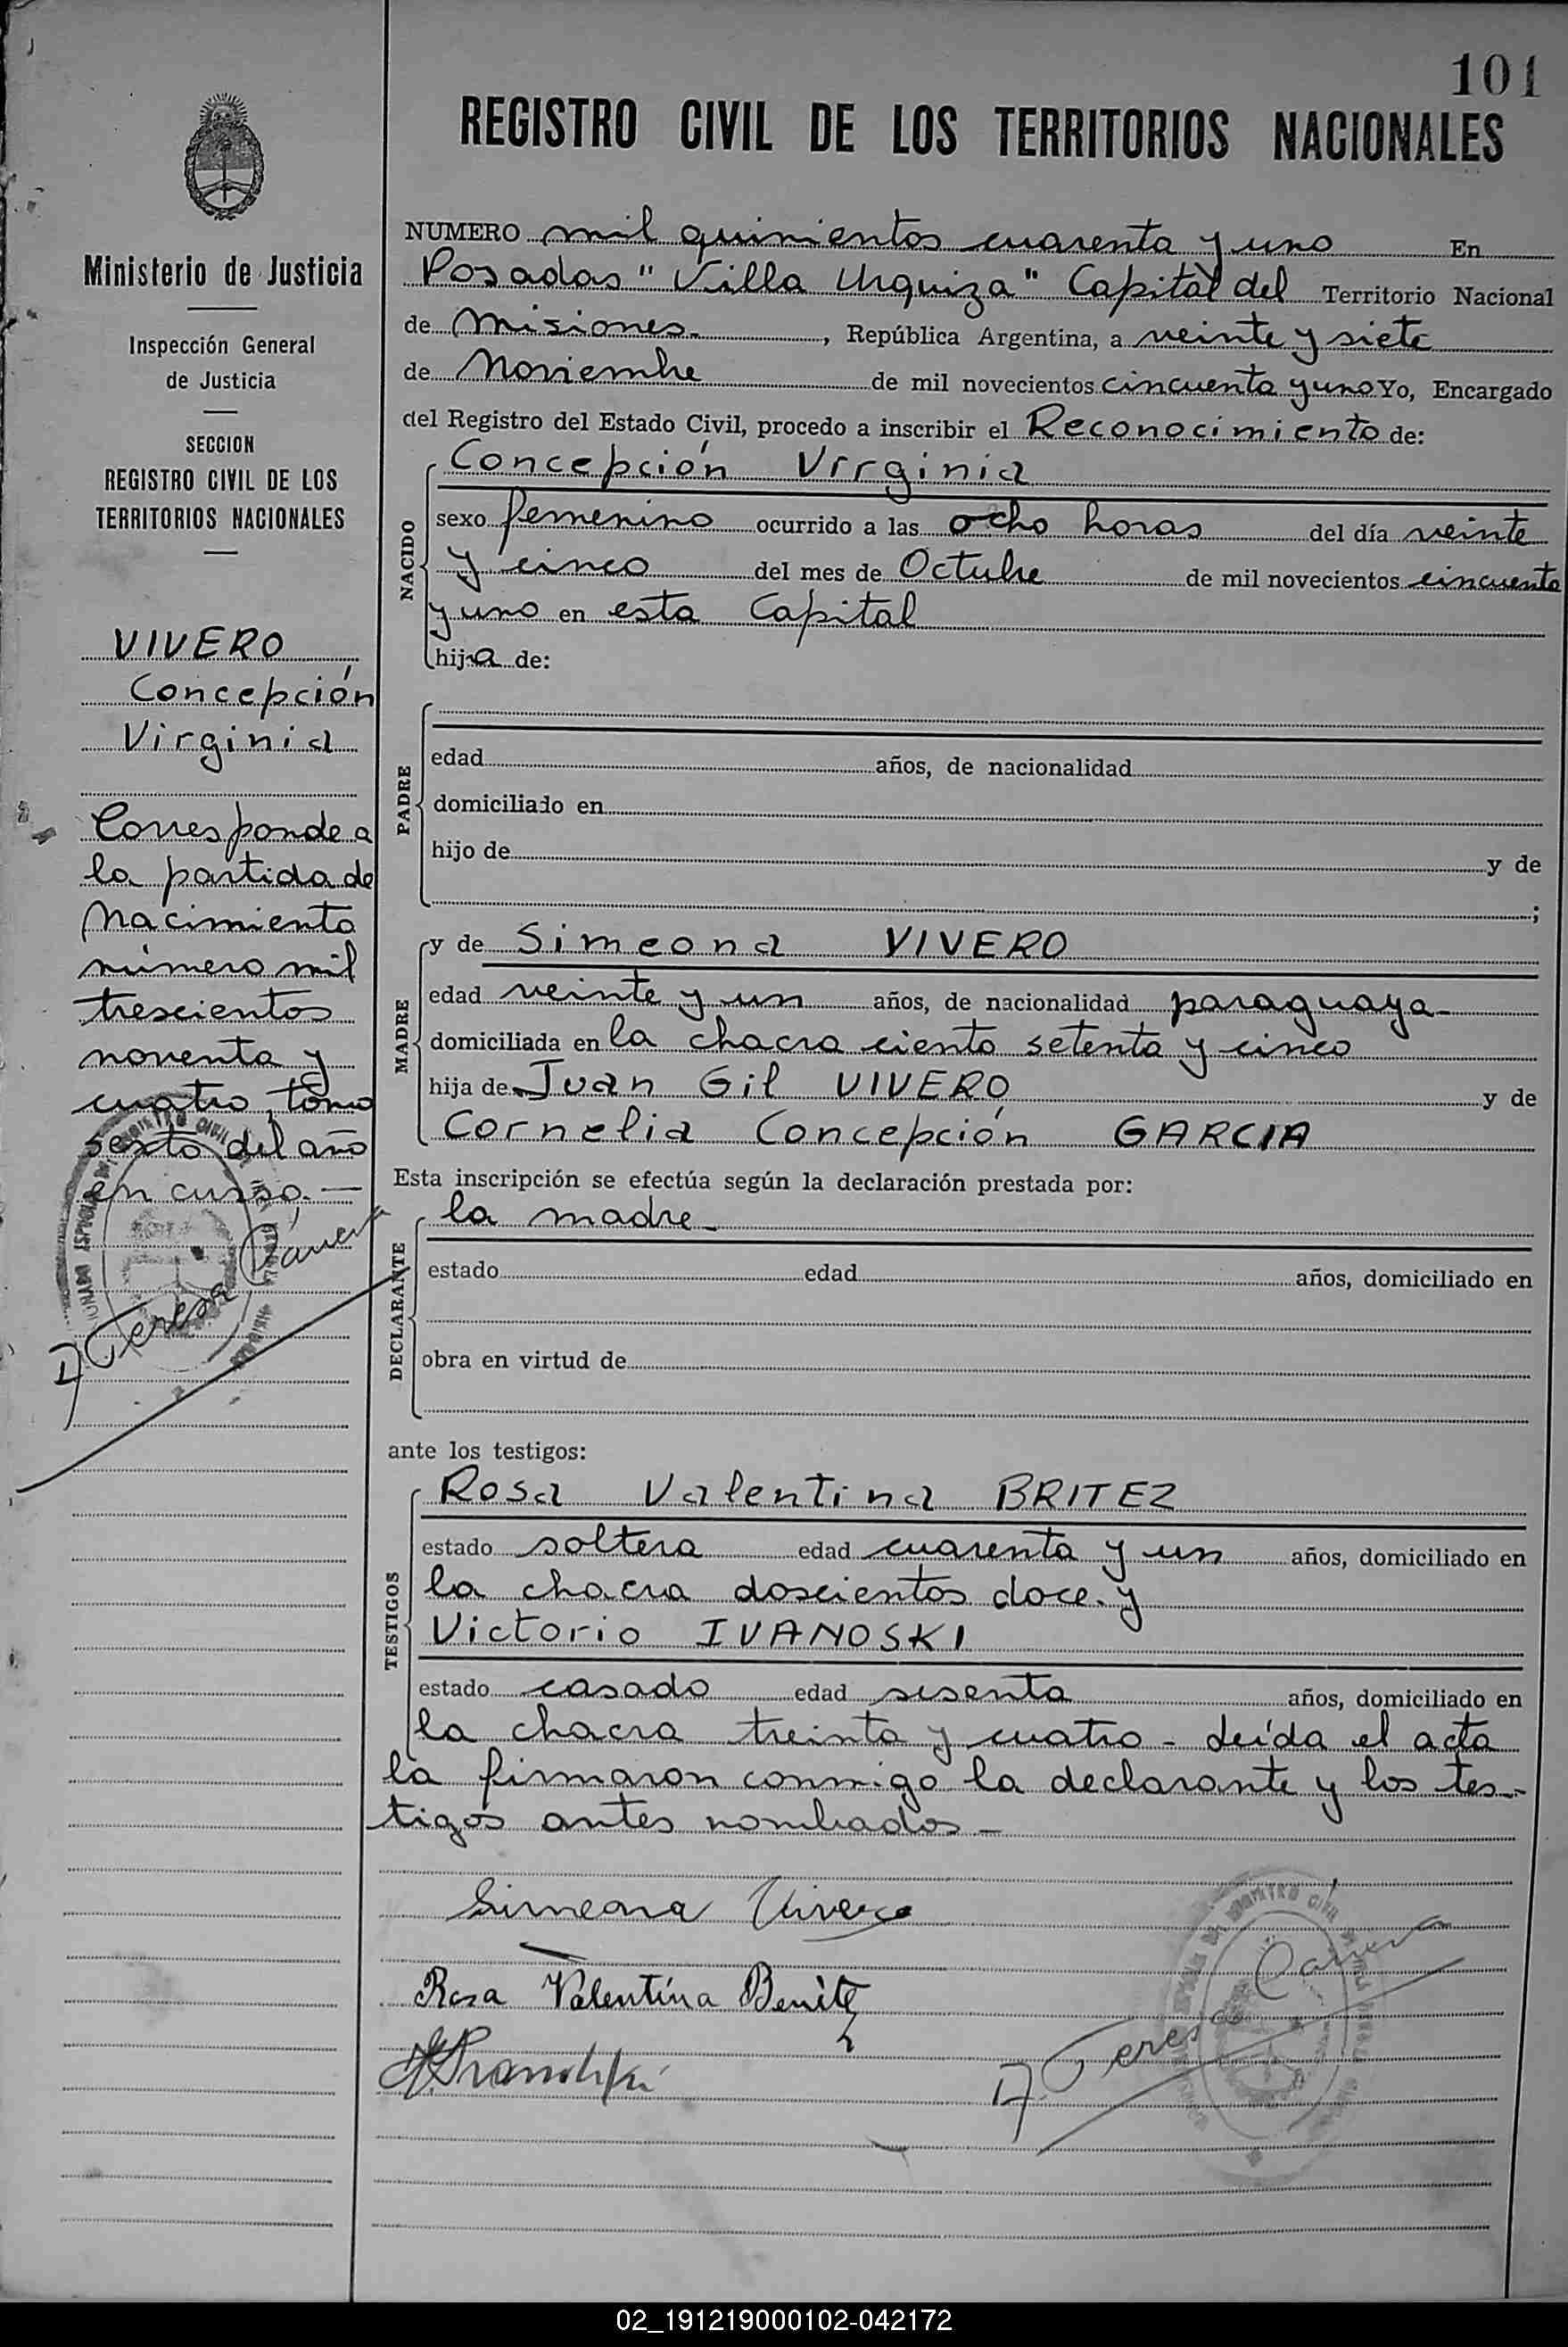 101
REGISTRO CIVIL DE LOS TERRITORIOS NACIONALES
Ministerio de Justicia
Inspección General
de Justicia
SECCION
REGISTRO CIVIL DE LOS
TERRITORIOS NACIONALES
VIVERO
Concepción
Virginia
Corresponde a
la partida de
Nacimiento
número mil
trescientos
noventa y
cuatro, tomo
sexto del año
en curso.—
Teresa
NUMERO mil quinientos cuarenta y uno En
Posadas "Villa Urquiza" Capital del Territorio Nacional
de Misiones , República Argentina, a veinte y siete
de Noviembre de mil novecientos cincuenta y uno Yo, Encargado
del Registro del Estado Civil, procedo a inscribir el Reconocimiento de:
NACIDO
Concepción Virginia
sexo femenino ocurrido a las ocho horas del día veinte
y cinco del mes de Octubre de mil novecientos cincuenta
y uno en esta Capital
hija de:
PADRE
edad años, de nacionalidad
domiciliado en
hijo de y de
;
MADRE
y de Simeona VIVERO
edad veinte y un años, de nacionalidad paraguaya-
domiciliada en la chacra ciento setenta y cinco
hija de Juan Gil VIVERO y de
Cornelia Concepción GARCIA
Esta inscripción se efectúa según la declaración prestada por:
DECLARANTE
la madre-
estado edad años, domiciliado en
obra en virtud de
ante los testigos:
TESTIGOS
Rosa Valentina BRITEZ
estado soltera edad cuarenta y un años, domiciliado en
la chacra doscientos doce. y
Victorio IVANOSKI
estado casado edad sesenta años, domiciliado en
la chacra treinta y cuatro - Leída el acta
la firmaron conmigo la declarante y los tes-
tigos antes nombrados-
Simeona Vivero
Rosa Valentina Benitez
Teresa
02_191219000102-042172